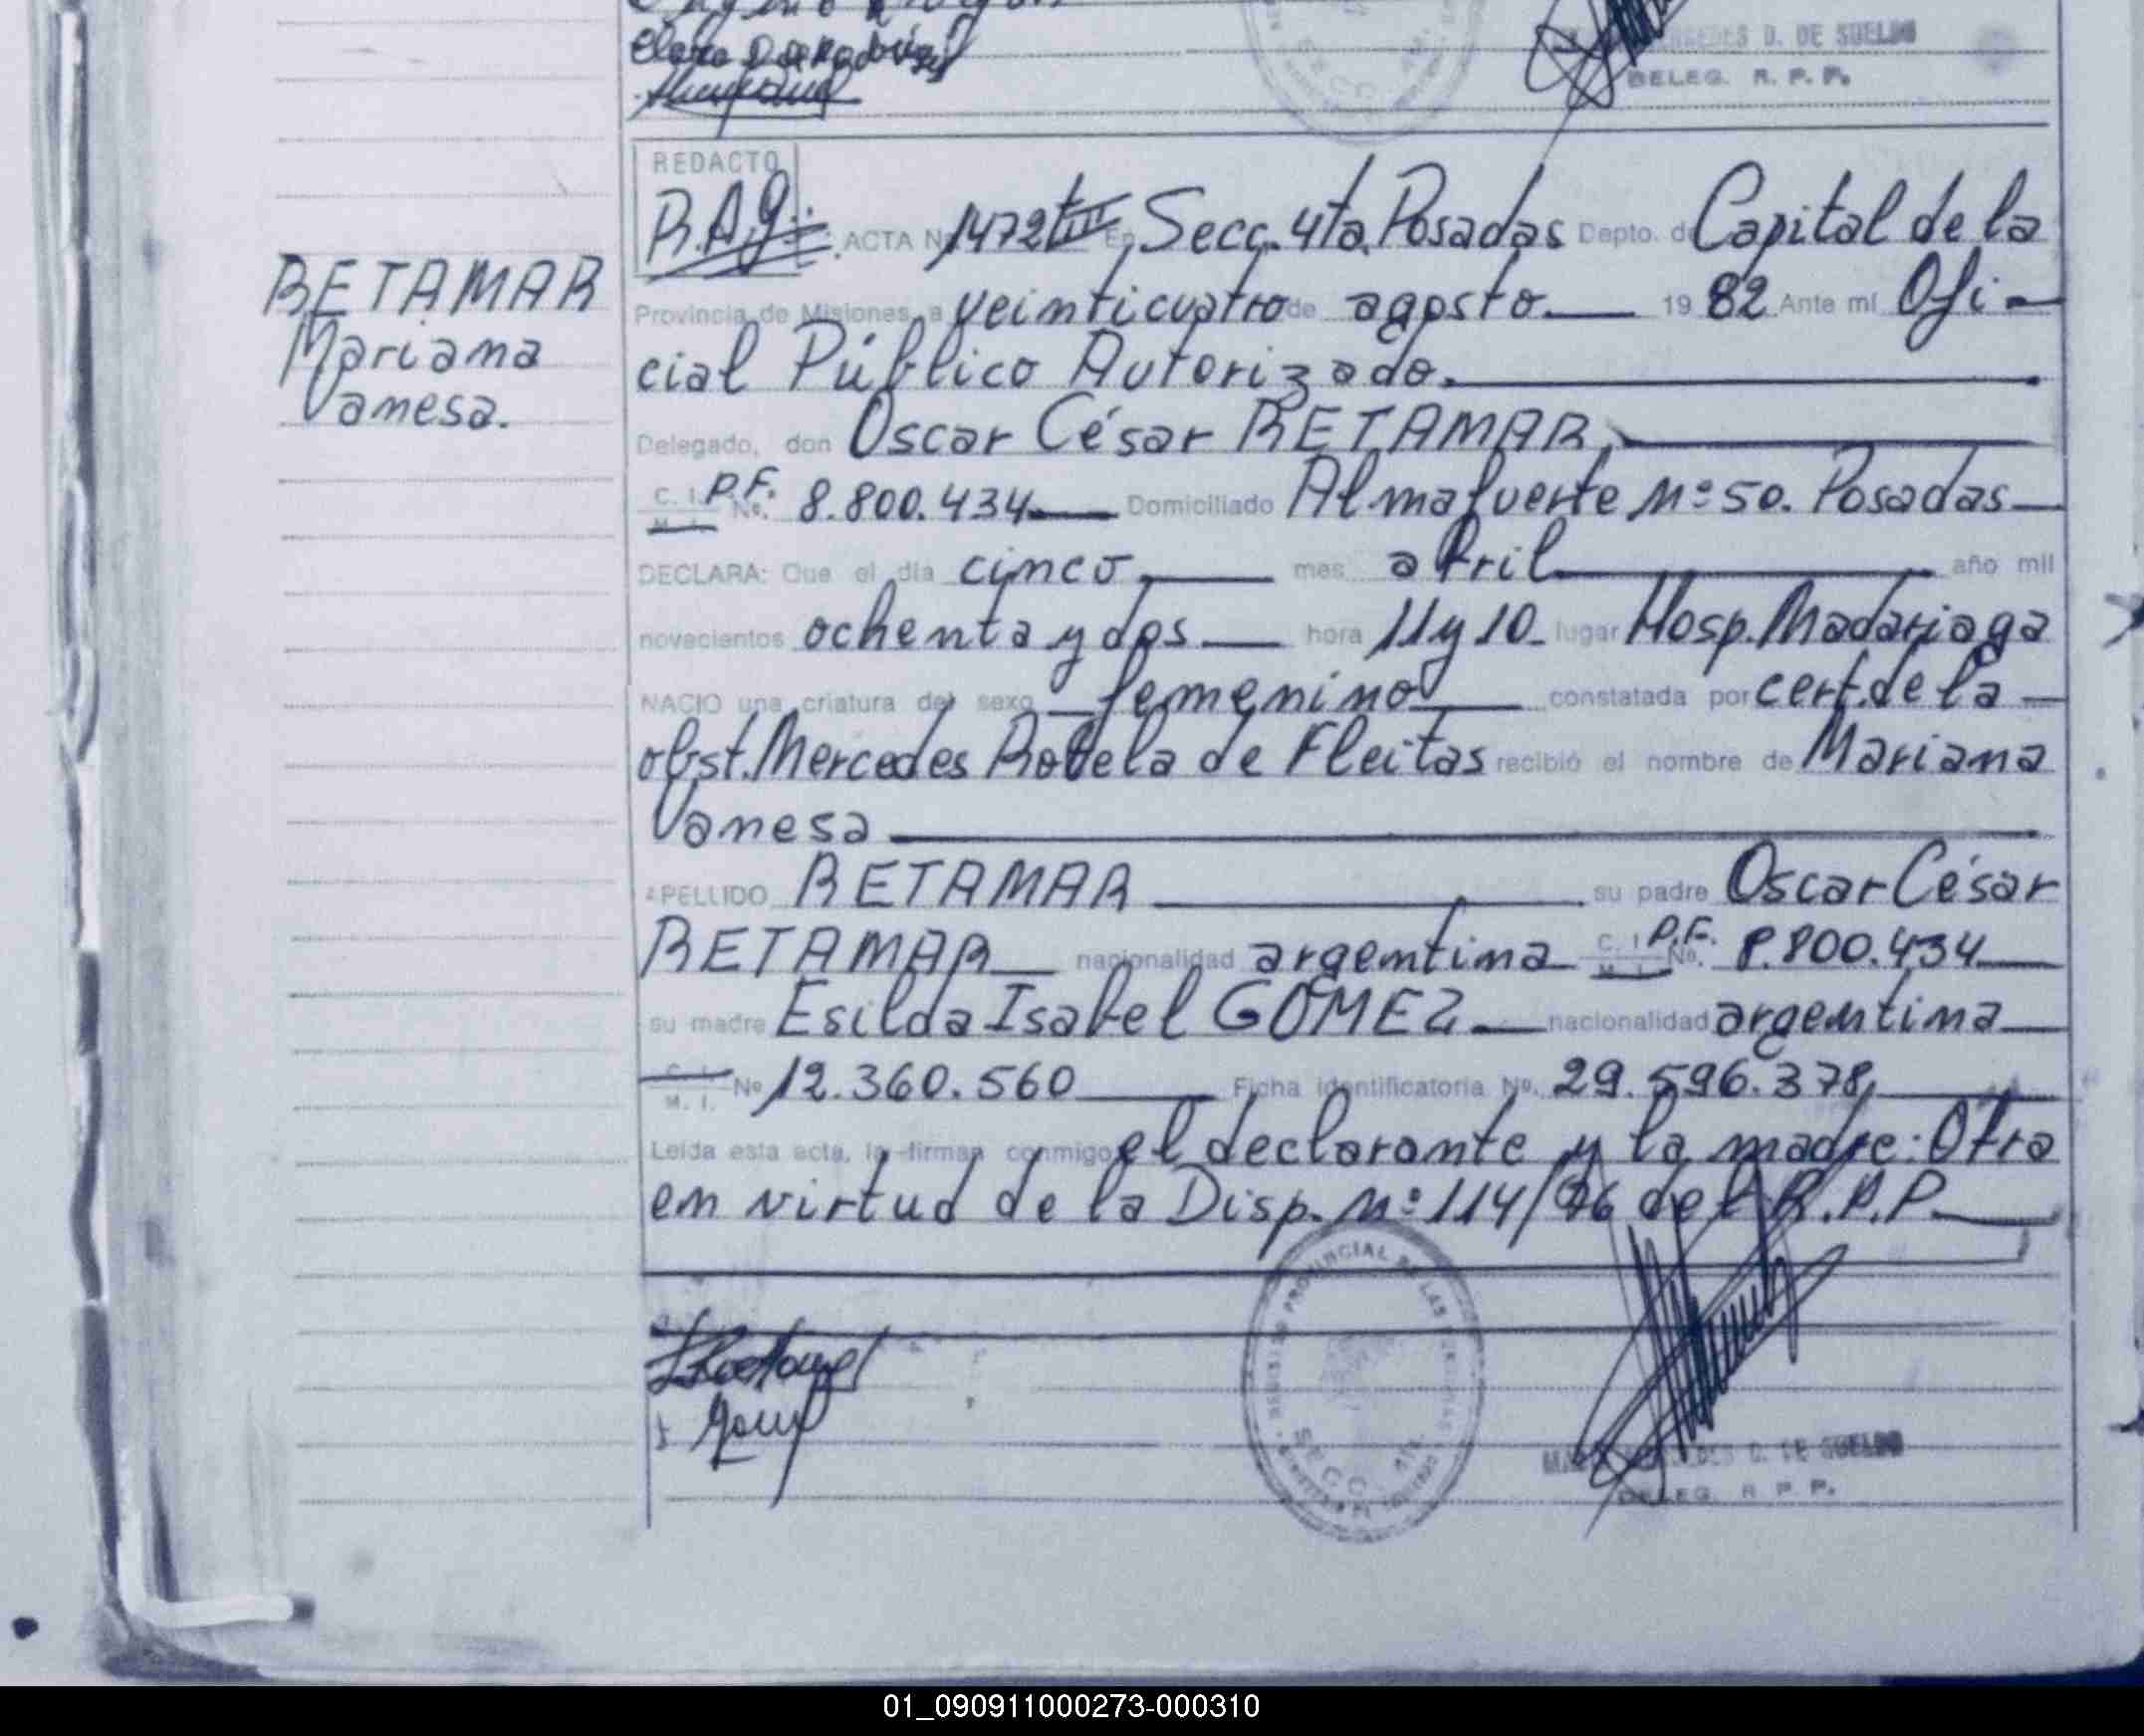 D. DE SUELDO
DELEG. R. P. P.
REDACTO
R.A.G. ACTA Nº 1472 tº III En Secc. 4ta. Posadas Depto. de Capital de la
RETAMAR
Mariana
Vanesa.
Provincia de Misiones, a veinticuatro de agosto. 19 82 Ante mí Ofi-
cial Público Autorizado.
Delegado, don Oscar César RETAMAR,
C. I. M. I. P.F. Nº. 8.800.434 Domiciliado Almafuerte Nº 50. Posadas
DECLARA: Que el día cinco, mes abril año mil
novecientos ochenta y dos hora 11 y 10 lugar Hosp. Madariaga
NACIO una criatura del sexo femenino constatada por cert. de la
obst. Mercedes Rotela de Fleitas recibió el nombre de Mariana
Vanesa
APELLIDO RETAMAR su padre Oscar César
RETAMAR nacionalidad argentina C. I. M. I. P.F. Nº. 8.800.434
su madre Esilda Isabel GOMEZ nacionalidad argentina
C. I. M. I. Nº 12.360.560 Ficha identificatoria Nº. 29.596.378,
Leída esta acta, la firman conmigo, el declarante y la madre: Otra
en virtud de la Disp. Nº 114/76 del R.P.P.
REGISTRO PROVINCIAL DE LAS PERSONAS
SECC. 4ta.
D. DE SUELDO
DELEG. R. P. P.
01_090911000273-000310